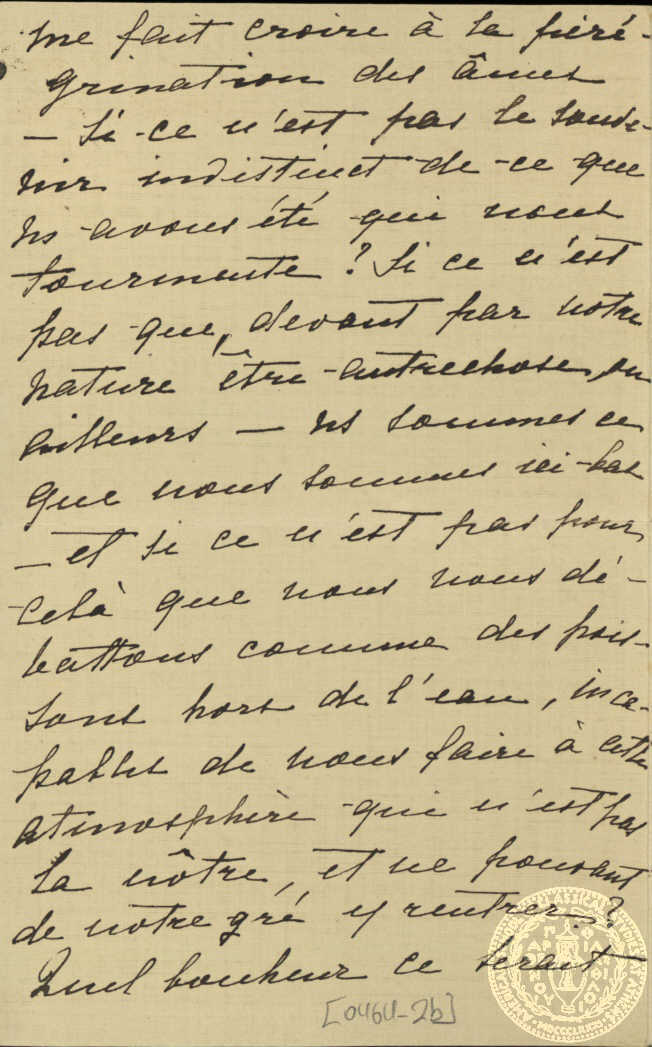 me fait croire à la péré-
grination des âmes
— Si ce n'est pas le souve-
nir indistinct de ce que
ns avons été qui nous
tourmente ? Si ce n'est
pas que, devant par notre
nature être autrechose, ou
ailleurs — ns sommes ce
que nous sommes ici-bas
— et si ce n'est pas pour
celà que nous nous dé-
battons comme des pois-
sons hors de l'eau, inca-
pables de nous faire à cette
atmosphère qui n'est pas
la nôtre, et ne pouvant
de notre gré y rentrer ?
Quel bonheur ce serait
[0464-2b]